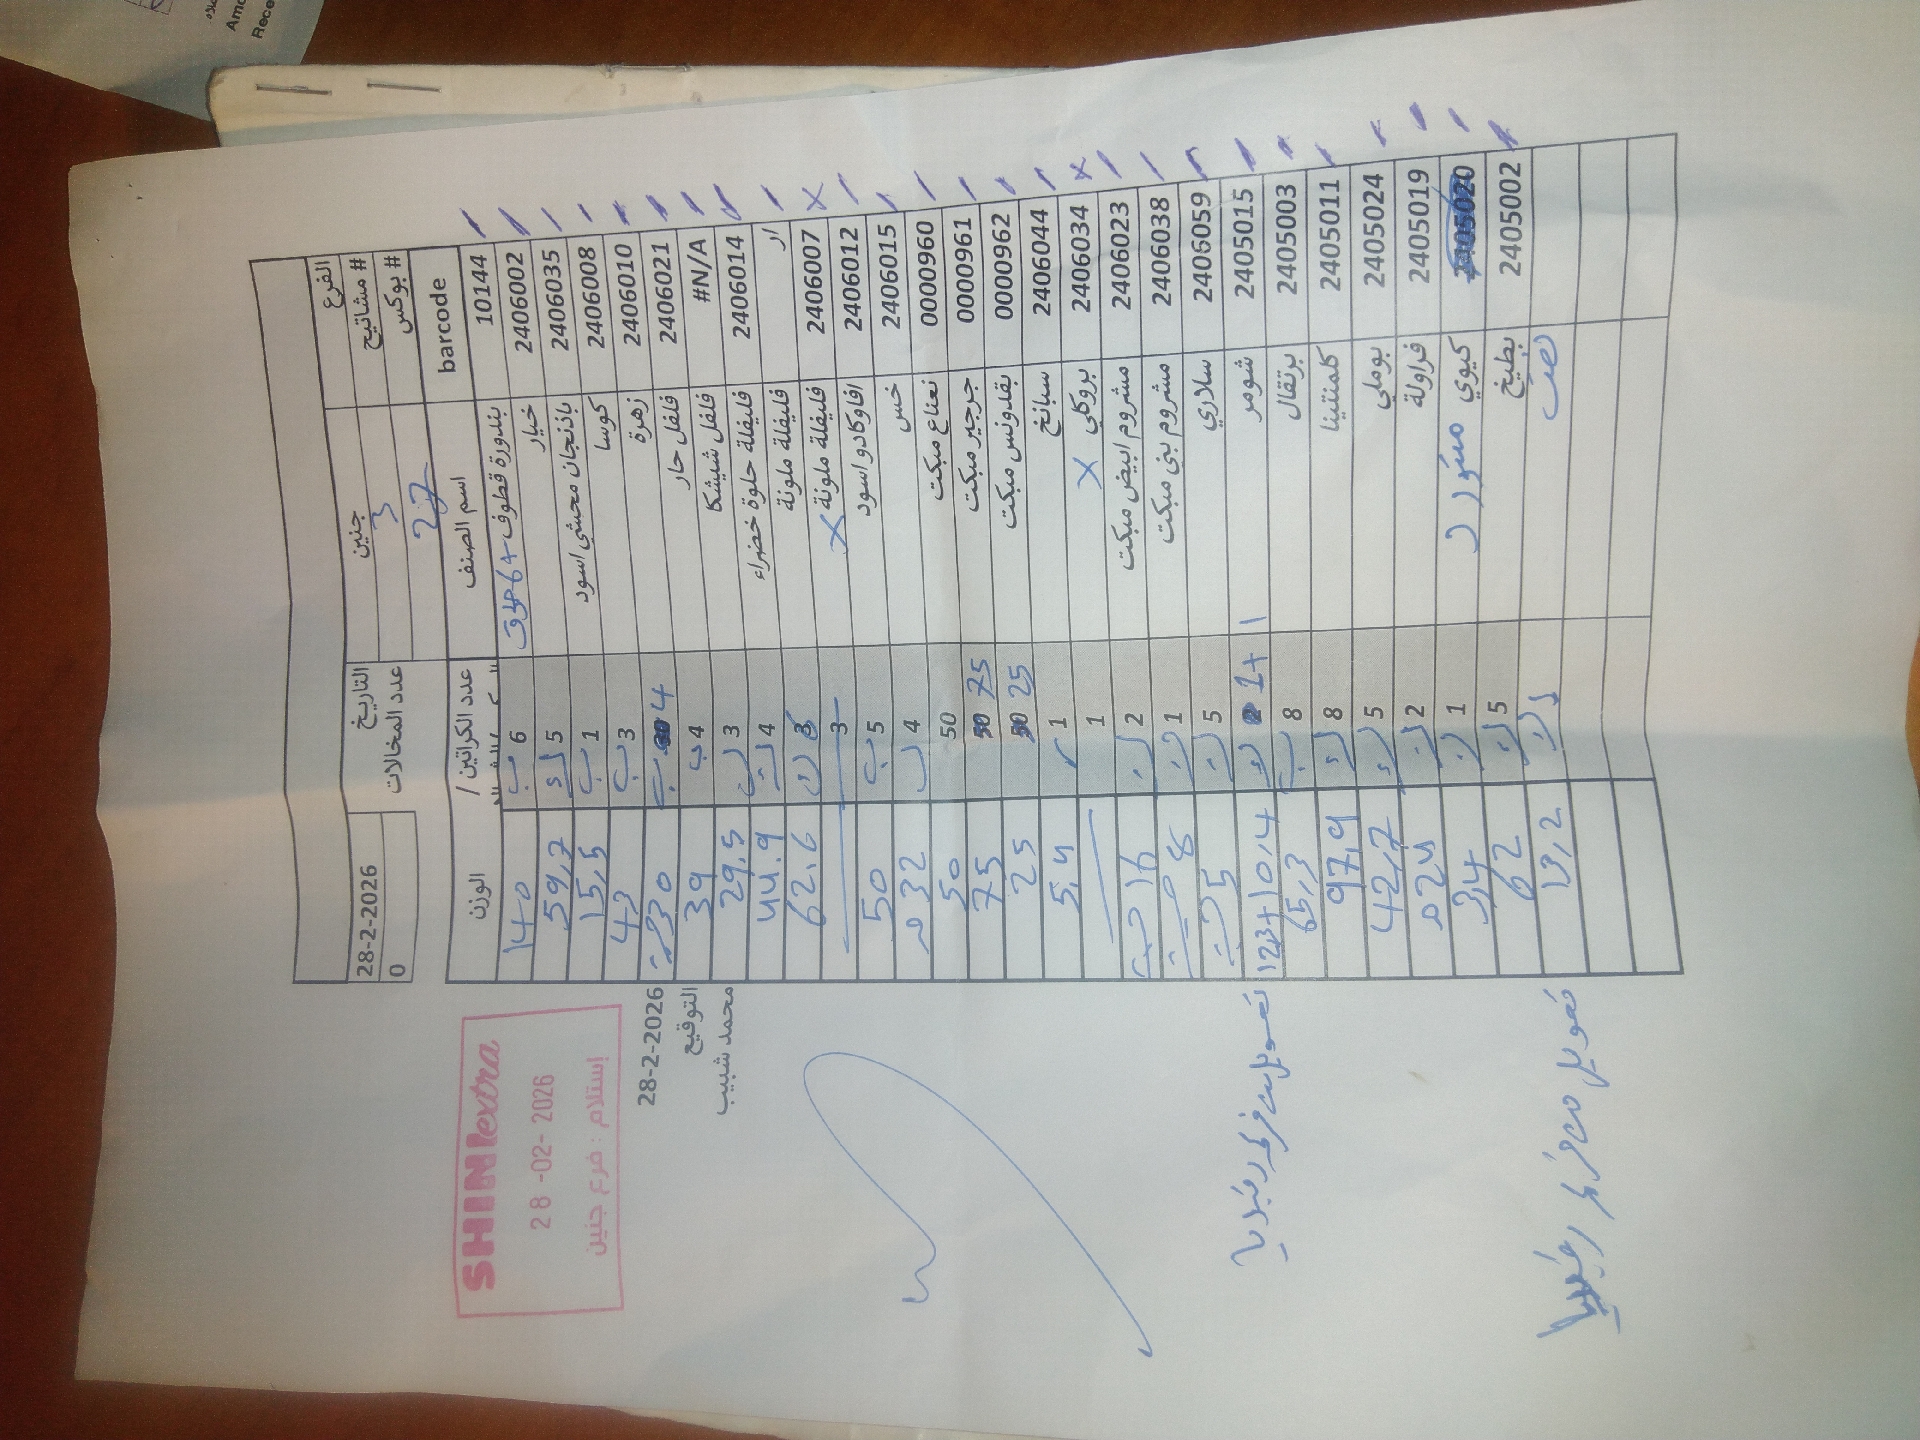 الفرع جنين التاريخ 28-2-2026
# مشاتيح 3 عدد المخالات 0
# بوكس 27
barcode اسم الصنف عدد الكراتين / الوزن
10144 بندورة قطوف 6+ 6 ب 140
2406002 خيار 5 59,7
2406035 باذنجان محشي اسود 1 ب 15,5
2406008 كوسا 3 ب 43
2406010 زهرة 4 ب 30
2406021 فلفل حار 4 ب 39
#N/A فلفل شيشكا 3 ب 29,5
2406014 فليفلة حلوة خضراء 4 44.9
فليفلة ملونة 3 62.6
2406007 فليفلة ملونة X 3
2406012 افاوكادو اسود 5 ب 50
2406015 خس 4 32
0000960 نعناع مبكت 50 50
0000961 جرجير مبكت 50 75 75
0000962 بقدونس مبكت 50 25 25
2406044 سبانخ 1 5,4
2406034 بروكلي X 1
2406023 مشروم ابيض مبكت 2 16
2406038 مشروم بني مبكت 1 8
2406059 سلاري 5 5
2405015 شومر 1+1 123+10,4
2405003 برتقال 8 65,3
2405011 كلمنتينا 8 97,9
2405024 بوملي 5 42,7
2405019 فراولة 2 24
2405020 كيوي 1 34
2405002 بطيخ 5 62
13,2
SHINI extra
28-02-2026
إستلام : فرع جنين
28-2-2026
التوقيع
محمد شبيب
تحويل من فرع رفيديا
تحويل من فرع رفيديا